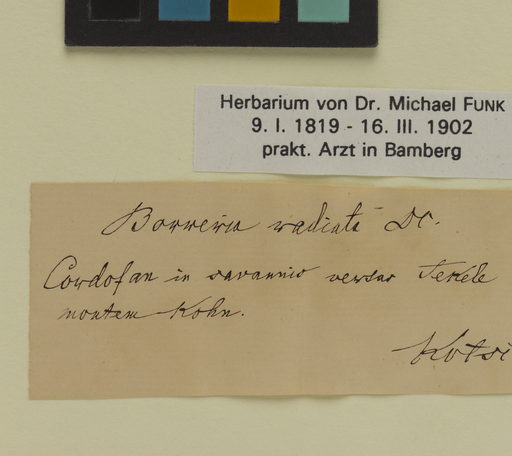 Herbarium von Dr. Michael FUNK
9. I. 1819 - 16. III. 1902
prakt. Arzt in Bamberg
Borreria radiata DC.
Cordofan in savannis versus Tekele
montem Kohn.
Kotsi